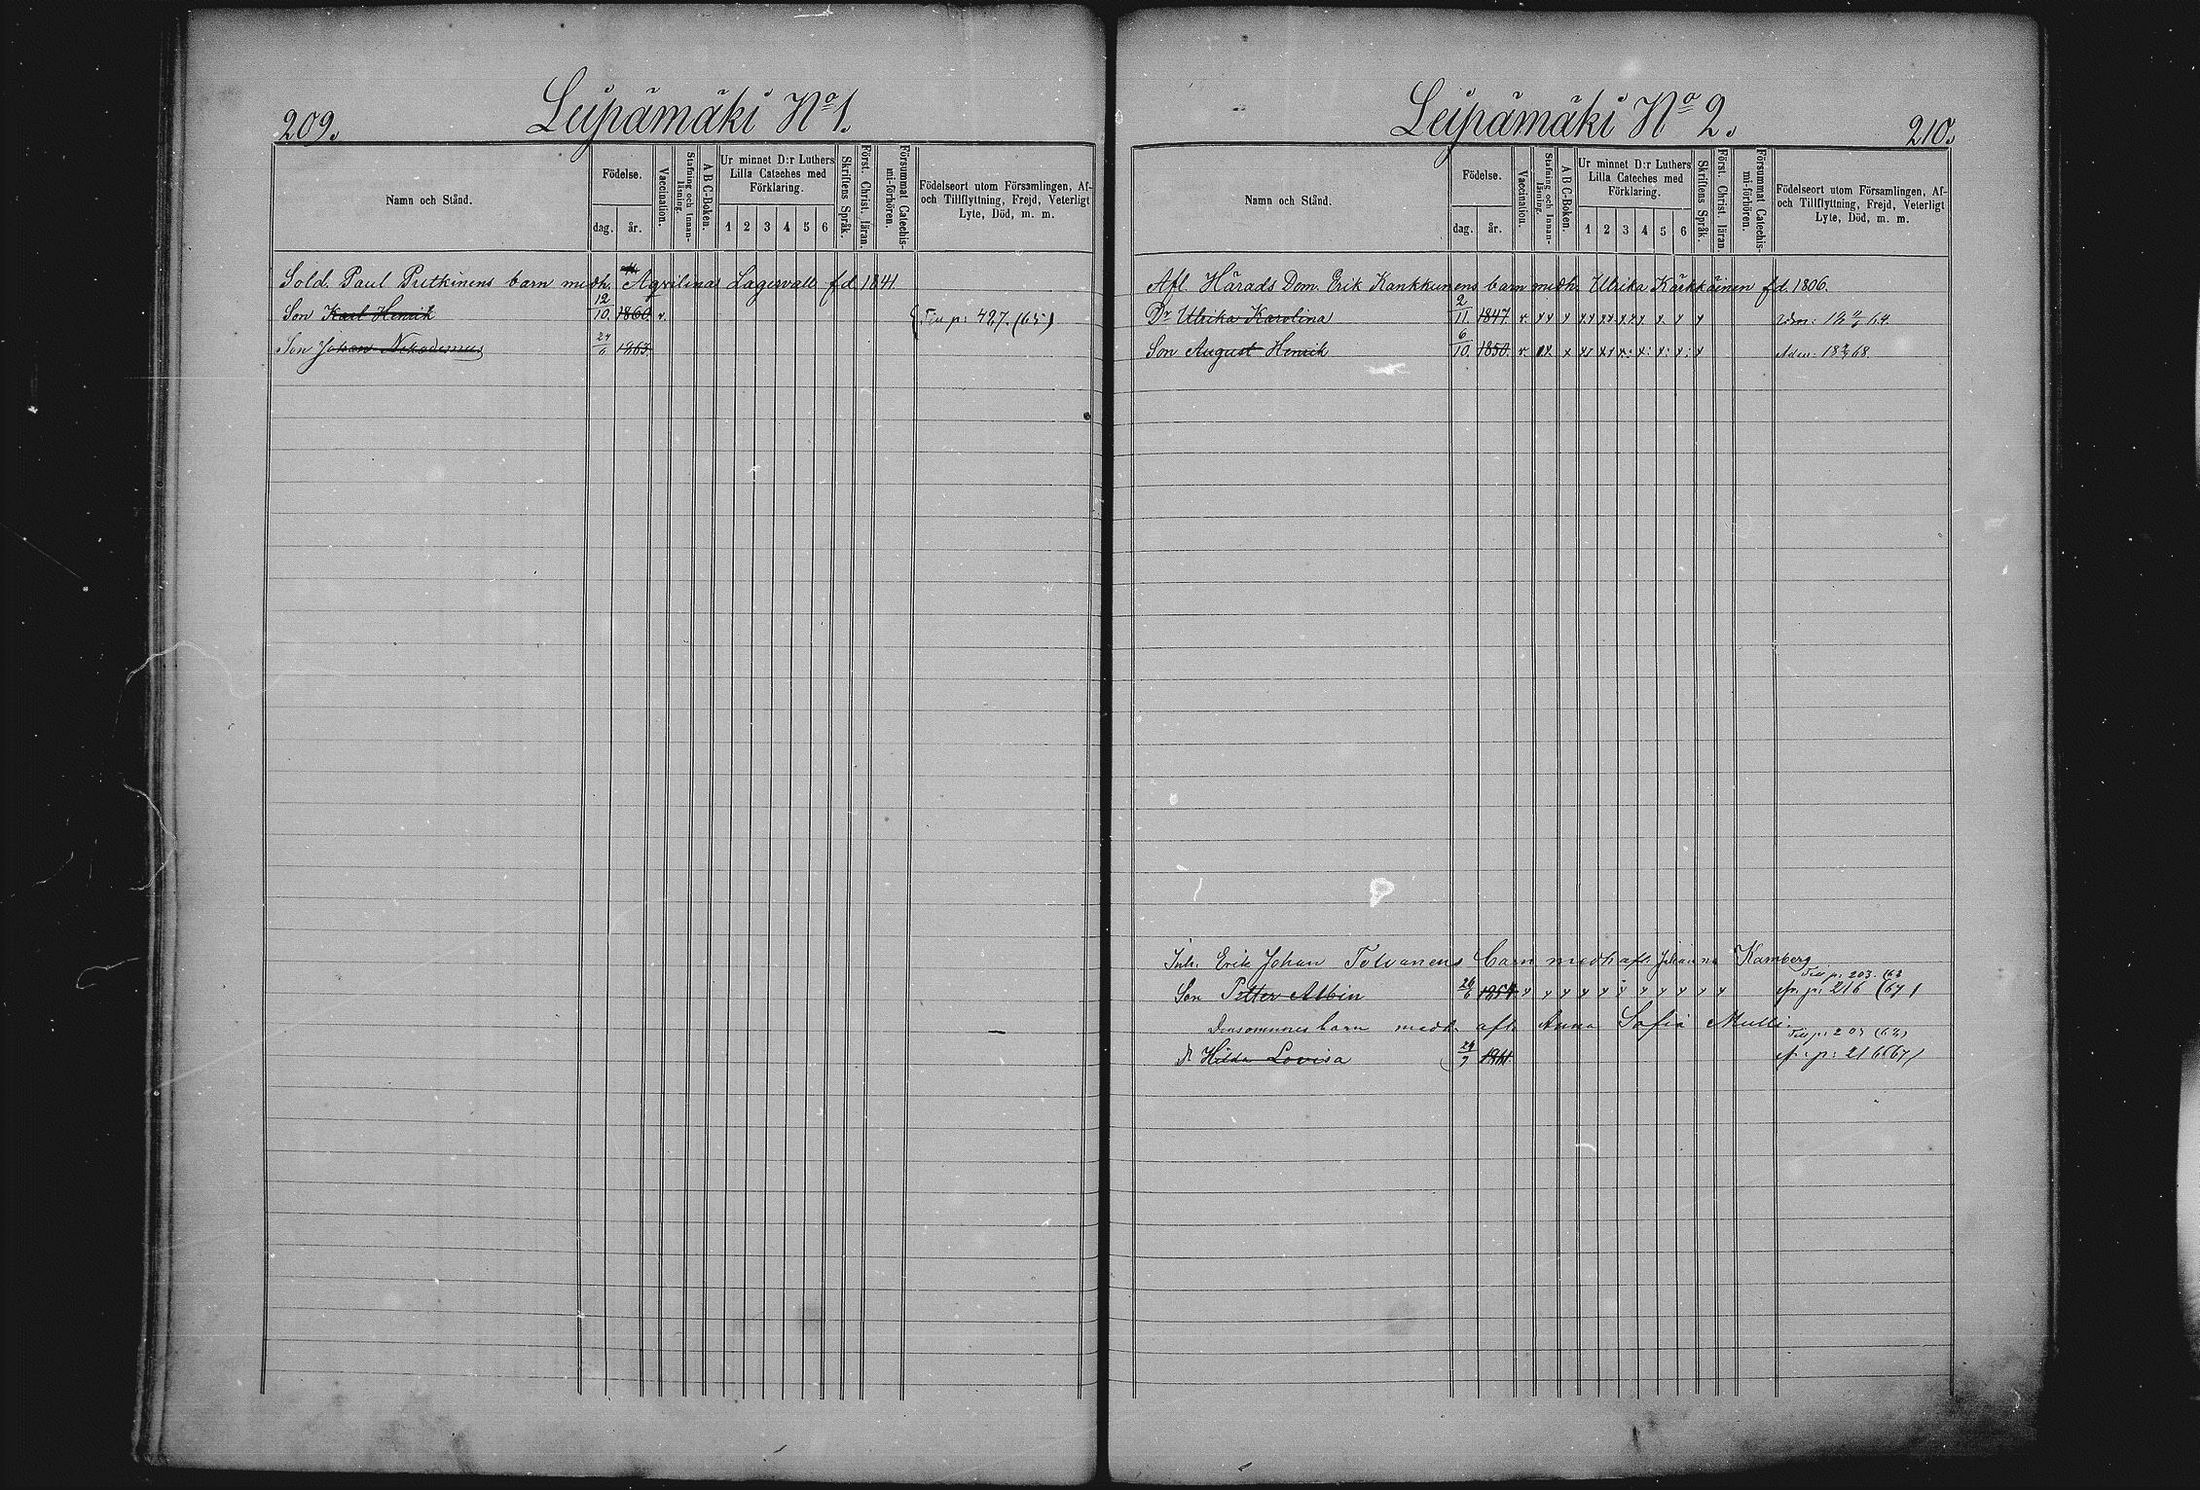 209.
Leipämäki No 1.
Namn och Stånd.
Födelse.
dag.
år.
Vaccination.
Stafning och Innanläsning.
A B C-Boken.
Ur minnet D:r Luthers Lilla Cateches med Förklaring.
1 2 3 4 5 6
Skriftens Språk.
Först. Christ. läran.
Försummat Catechismi-förhören.
Födelseort utom Församlingen, Af- och Tillflyttning, Frejd, Veterligt Lyte, Död, m. m.
Sold. Paul Putkinens barn med h. Aqvilina Lagervall f.d. 1841
Son Karl Henrik 12/10 1860 v. p. 427. (65)
Son Johan Nikodemus 24/6 1863.
Leipämäki No 2.
210.
Namn och Stånd.
Födelse.
dag.
år.
Vaccination.
Stafning och Innanläsning.
A B C-Boken.
Ur minnet D:r Luthers Lilla Cateches med Förklaring.
1 2 3 4 5 6
Skriftens Språk.
Först. Christ. läran.
Försummat Catechismi-förhören.
Födelseort utom Församlingen, Af- och Tillflyttning, Frejd, Veterligt Lyte, Död, m. m.
Afl. Härads Dom. Erik Kankkunens barn med h. Ulrika Kärkkäinen f.d. 1806.
Dr Ulrika Karolina 2/11 1847. v. x x x x x x x x x x x x x x
Son August Henrik 6/10 1850. v. x x x x x x x x x x x x Adm. 68
Inh. Erik Johan Tolvanens barn med h afl. Johanna Kamberg
Till p. 203. (63
Son Petter Albin 26/6 1854 v v v v v v v v v v v p: 216 (67)
Densammes barn med h. afl. Anna Sofia Mulli
Till p: 203 (63)
D Hilda Lovisa 29/9 1861 p: 216 (67)